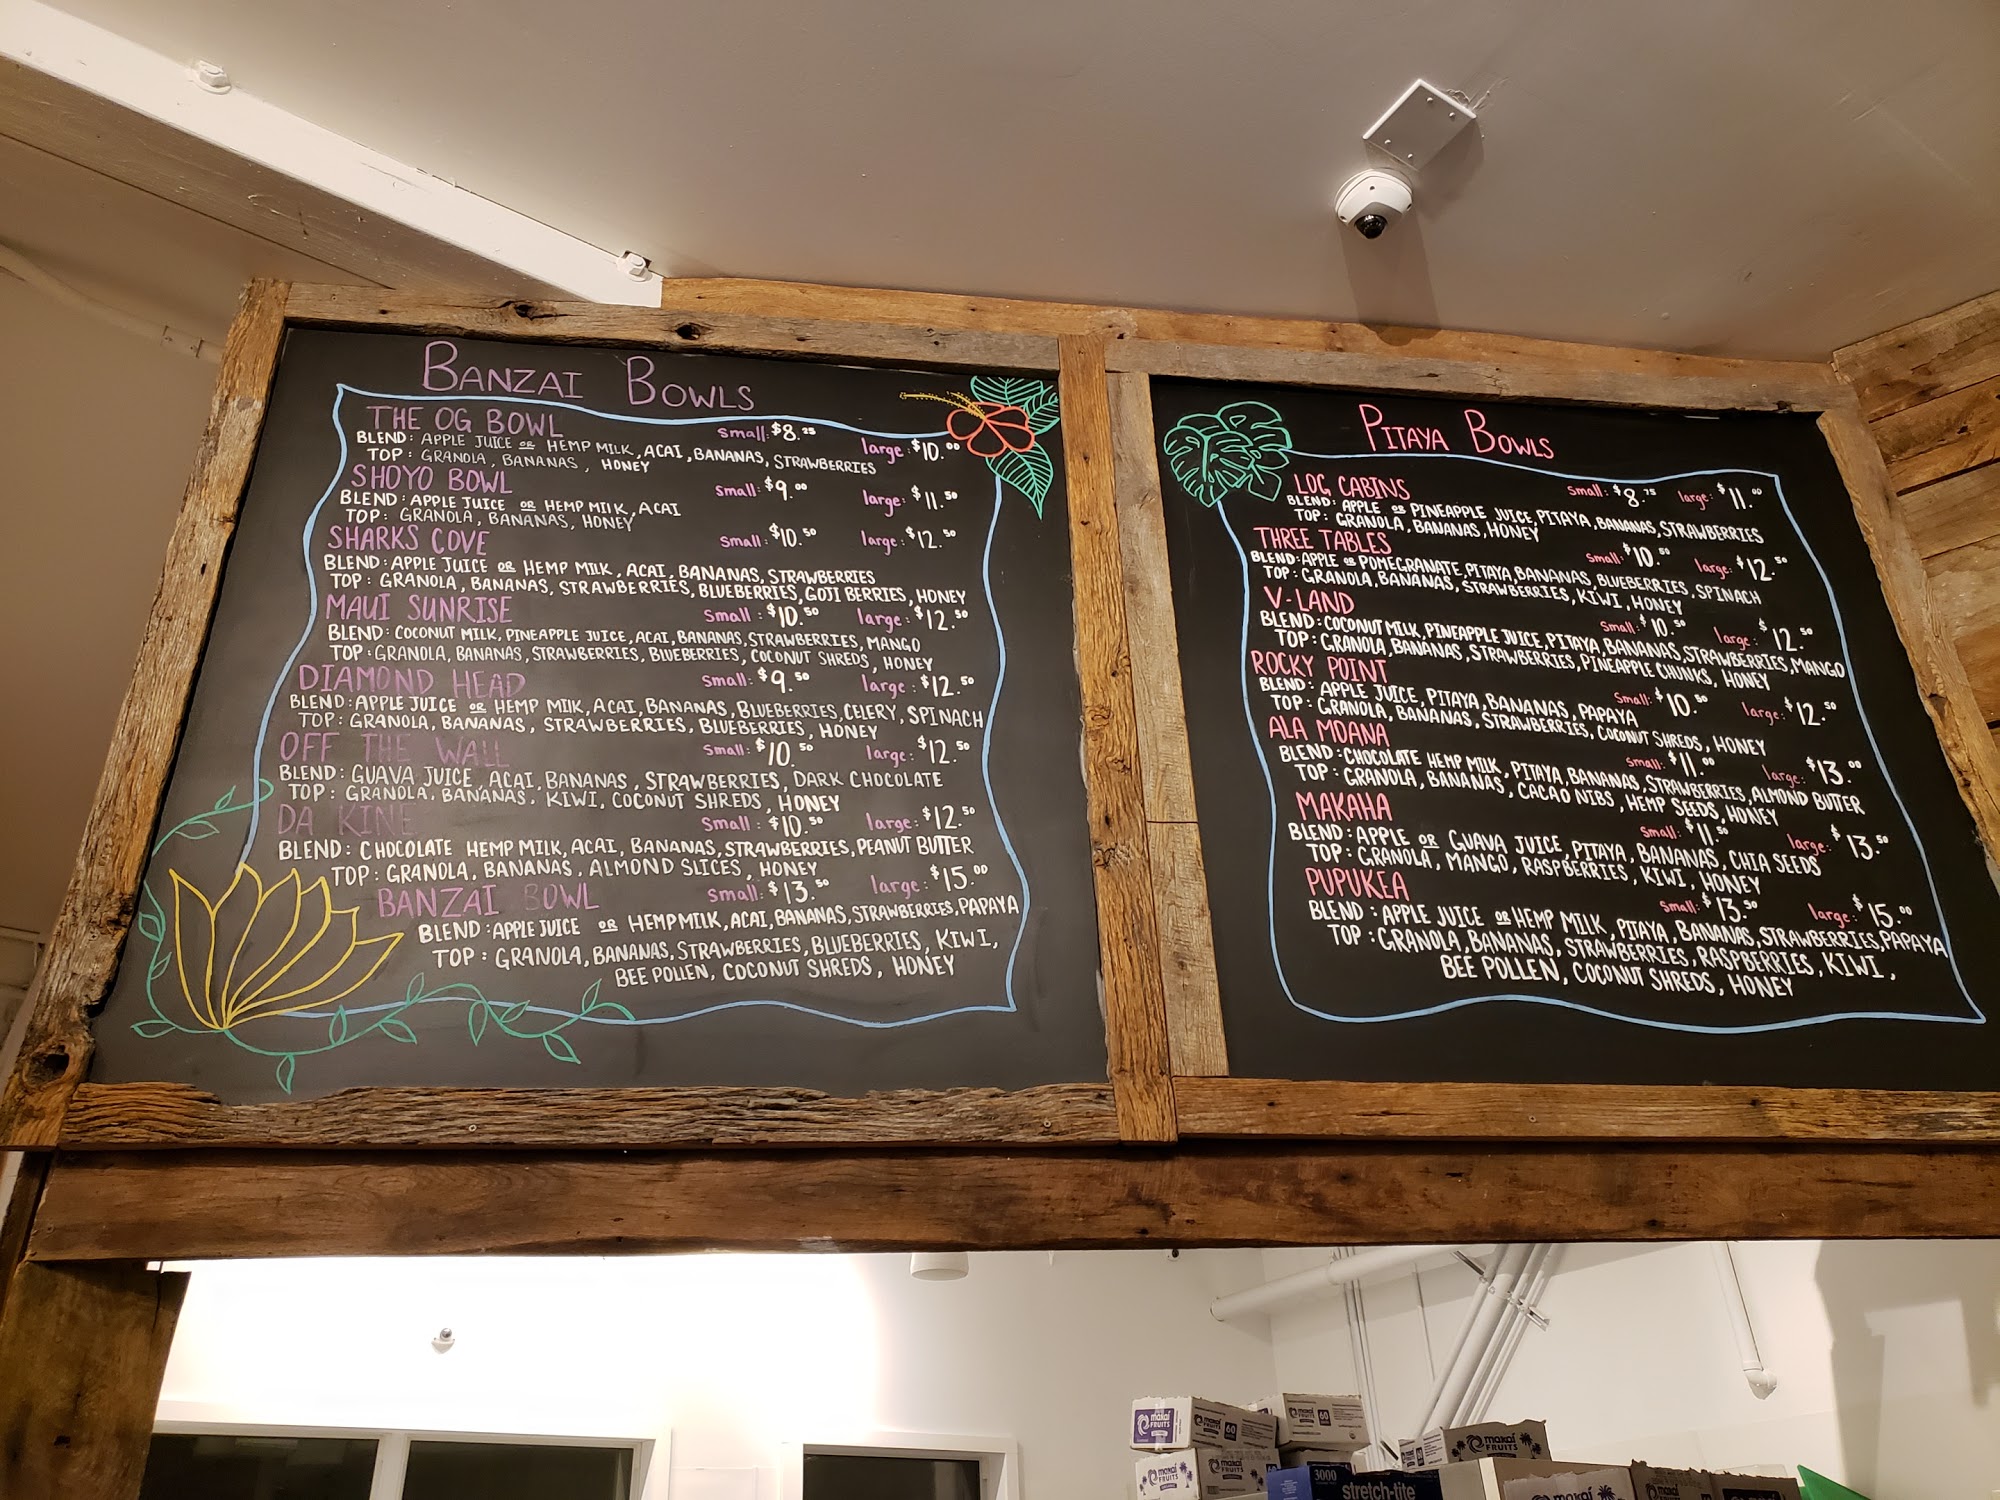 BANZAI BOWLS
THE OG BOWL small: $8.25 large: $10.00
BLEND: APPLE JUICE OR HEMP MILK, ACAI, BANANAS, STRAWBERRIES
TOP: GRANOLA, BANANAS, HONEY
SHOYO BOWL small: $9.00 large: $11.50
BLEND: APPLE JUICE OR HEMP MILK, ACAI
TOP: GRANOLA, BANANAS, HONEY
SHARKS COVE small: $10.50 large: $12.50
BLEND: APPLE JUICE OR HEMP MILK, ACAI, BANANAS, STRAWBERRIES
TOP: GRANOLA, BANANAS, STRAWBERRIES, BLUEBERRIES, GOJI BERRIES, HONEY
MAUI SUNRISE small: $10.50 large: $12.50
BLEND: COCONUT MILK, PINEAPPLE JUICE, ACAI, BANANAS, STRAWBERRIES, MANGO
TOP: GRANOLA, BANANAS, STRAWBERRIES, BLUEBERRIES, COCONUT SHREDS, HONEY
DIAMOND HEAD small: $9.50 large: $12.50
BLEND: APPLE JUICE OR HEMP MILK, ACAI, BANANAS, BLUEBERRIES, CELERY, SPINACH
TOP: GRANOLA, BANANAS, STRAWBERRIES, BLUEBERRIES, HONEY
OFF THE WALL small: $10.50 large: $12.50
BLEND: GUAVA JUICE, ACAI, BANANAS, STRAWBERRIES, DARK CHOCOLATE
TOP: GRANOLA, BANANAS, KIWI, COCONUT SHREDS, HONEY
DA KINE small: $10.50 large: $12.50
BLEND: CHOCOLATE HEMP MILK, ACAI, BANANAS, STRAWBERRIES, PEANUT BUTTER
TOP: GRANOLA, BANANAS, ALMOND SLICES, HONEY
BANZAI BOWL small: $13.50 large: $15.00
BLEND: APPLE JUICE OR HEMP MILK, ACAI, BANANAS, STRAWBERRIES, PAPAYA
TOP: GRANOLA, BANANAS, STRAWBERRIES, BLUEBERRIES, KIWI,
BEE POLLEN, COCONUT SHREDS, HONEY
PITAYA BOWLS
LOG CABINS small: $8.75 large: $11.00
BLEND: APPLE OR PINEAPPLE JUICE, PITAYA, BANANAS, STRAWBERRIES
TOP: GRANOLA, BANANAS, HONEY
THREE TABLES small: $10.50 large: $12.50
BLEND: APPLE OR POMEGRANATE, PITAYA, BANANAS, BLUEBERRIES, SPINACH
TOP: GRANOLA, BANANAS, STRAWBERRIES, KIWI, HONEY
V-LAND small: $10.50 large: $12.50
BLEND: COCONUT MILK, PINEAPPLE JUICE, PITAYA, BANANAS, STRAWBERRIES, MANGO
TOP: GRANOLA, BANANAS, STRAWBERRIES, PINEAPPLE CHUNKS, HONEY
ROCKY POINT small: $10.50 large: $12.50
BLEND: APPLE JUICE, PITAYA, BANANAS, PAPAYA
TOP: GRANOLA, BANANAS, STRAWBERRIES, COCONUT SHREDS, HONEY
ALA MOANA small: $11.00 large: $13.00
BLEND: CHOCOLATE HEMP MILK, PITAYA, BANANAS, STRAWBERRIES, ALMOND BUTTER
TOP: GRANOLA, BANANAS, CACAO NIBS, HEMP SEEDS, HONEY
MAKAHA small: $11.50 large: $13.50
BLEND: APPLE OR GUAVA JUICE, PITAYA, BANANAS, CHIA SEEDS
TOP: GRANOLA, MANGO, RASPBERRIES, KIWI, HONEY
PUPUKEA small: $13.50 large: $15.00
BLEND: APPLE JUICE OR HEMP MILK, PITAYA, BANANAS, STRAWBERRIES, PAPAYA
TOP: GRANOLA, BANANAS, STRAWBERRIES, RASPBERRIES, KIWI,
BEE POLLEN, COCONUT SHREDS, HONEY
makai FRUITS 60
makai FRUITS 60
makai FRUITS
makai FRUITS
makai FRUITS
3000 stretch-tite
makai FRUITS